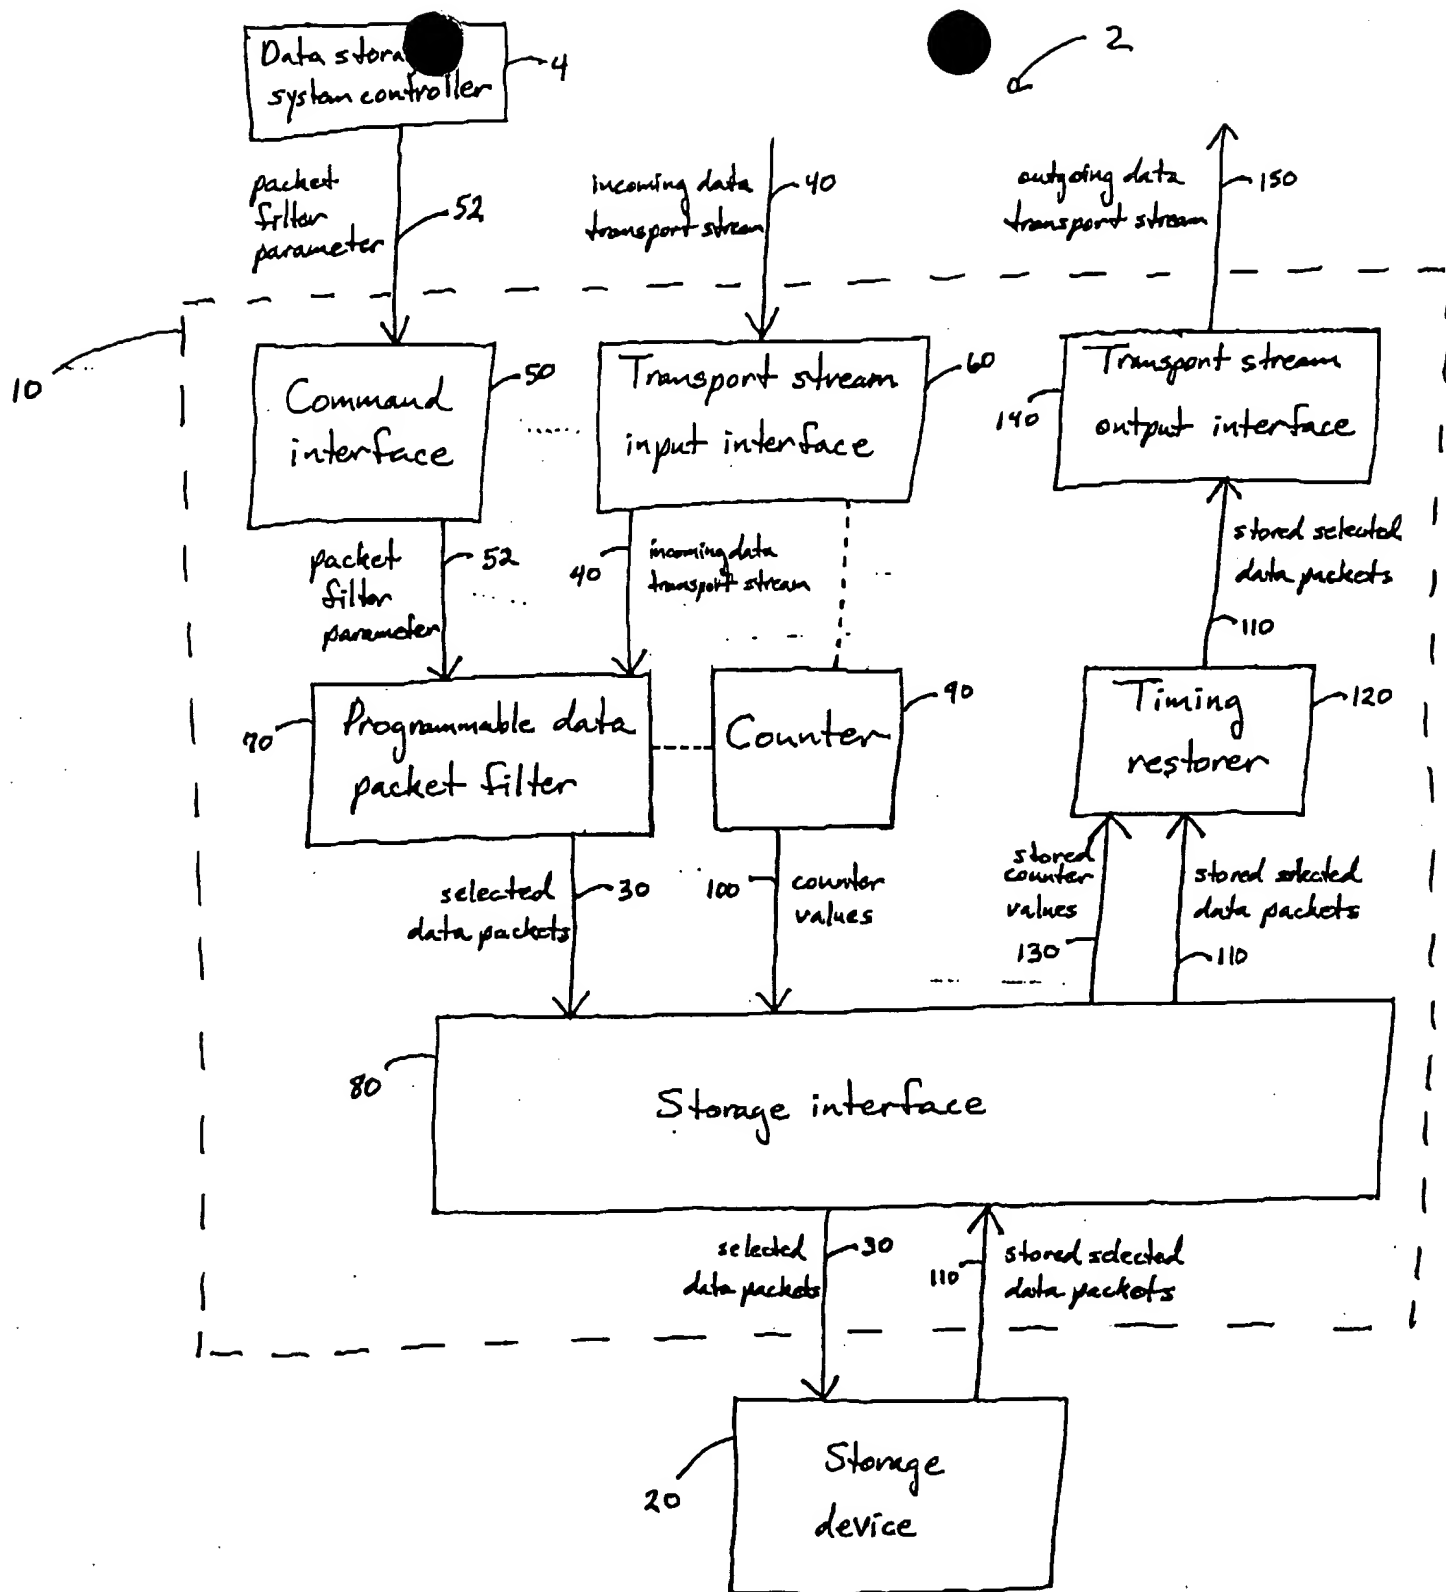 Data stora
system controller
4
2
packet
filter
parameter
52
incoming data
transport stream
40
outgoing data
transport stream
150
10
Command
interface
50
Transport stream
input interface
60
Transport stream
output interface
140
packet
filter
parameter
52
40
incoming data
transport stream
stored selected
data packets
110
70
Programmable data
packet filter
Counter
90
Timing
restorer
120
selected
data packets
30
100
counter
values
stored
counter
values
130
stored selected
data packets
110
80
Storage interface
selected
data packets
30
110
stored selected
data packets
20
Storage
device